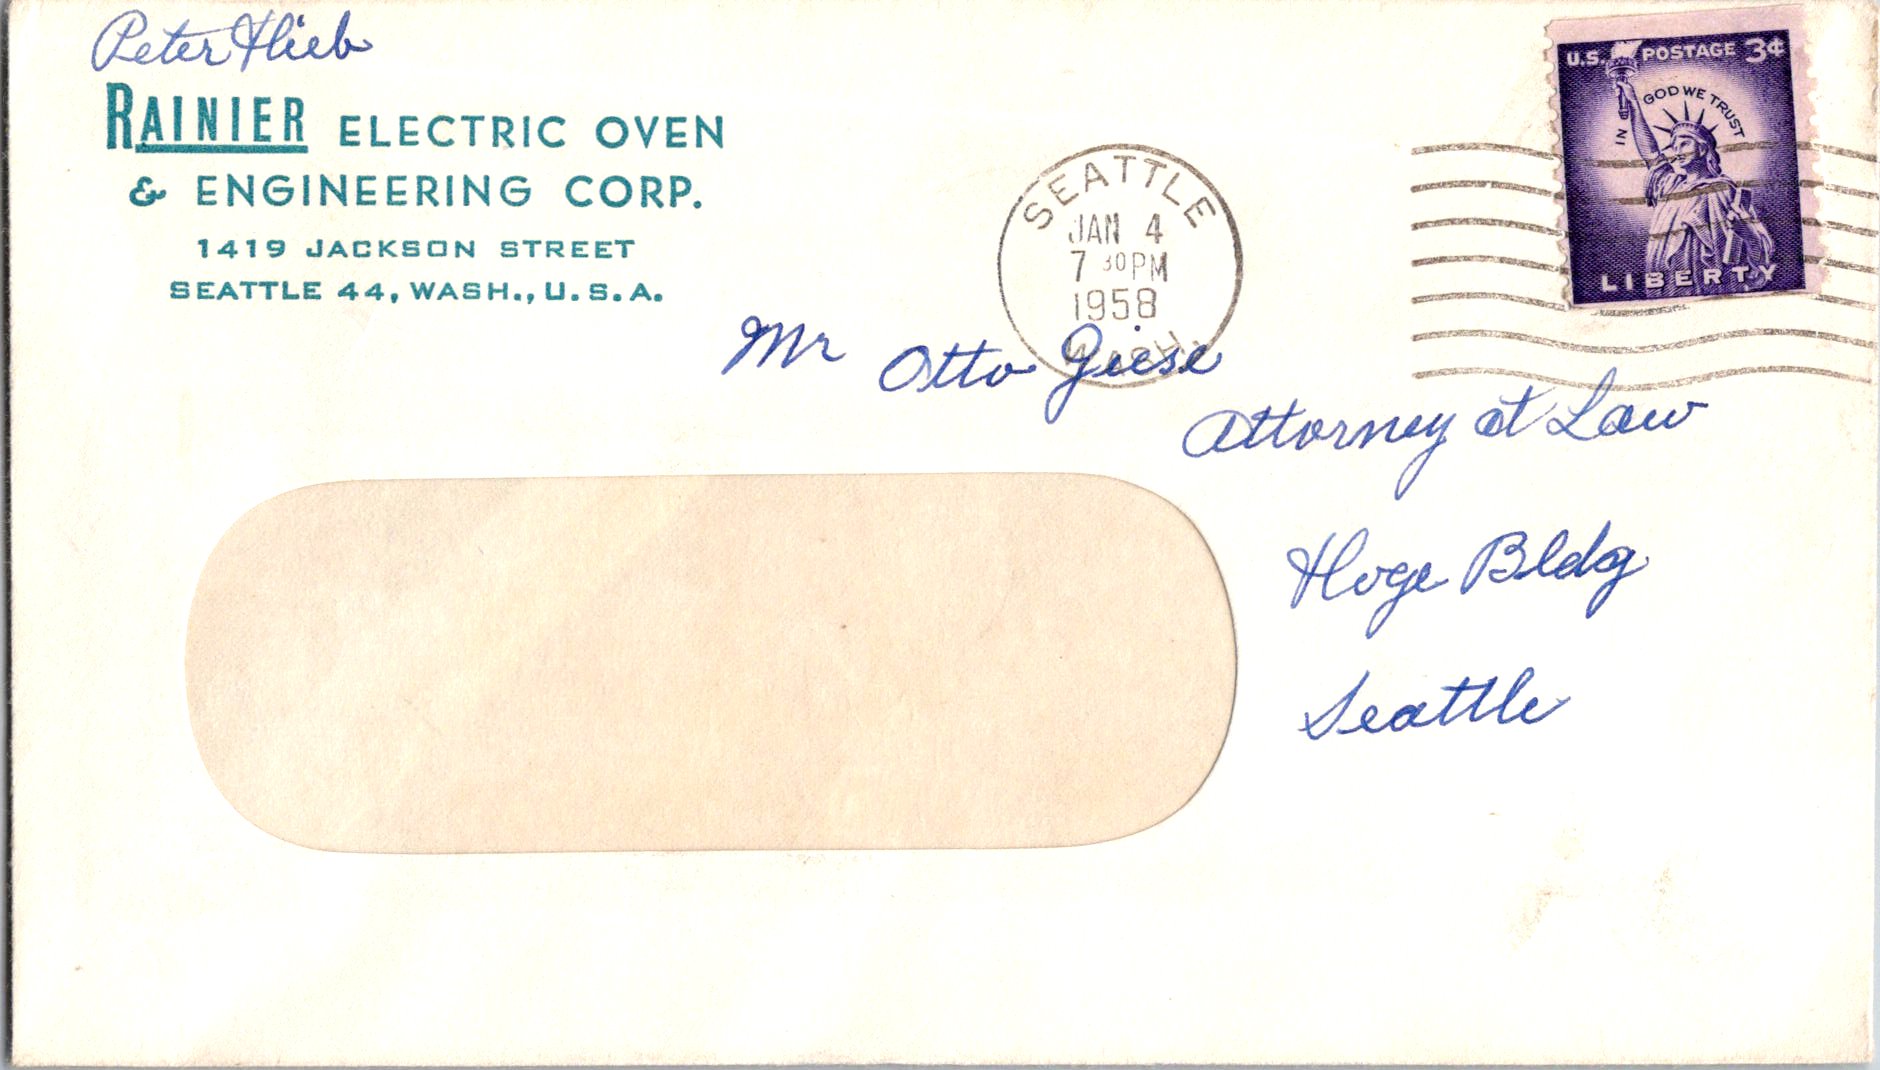 Peter Hieb
RAINIER ELECTRIC OVEN
& ENGINEERING CORP.
1419 JACKSON STREET
SEATTLE 44, WASH., U.S.A.
U.S. POSTAGE 3¢
IN GOD WE TRUST
LIBERTY
SEATTLE
JAN 4
7 30 PM
1958
WASH.
Mr Otto Giese
Attorney at Law
Hoge Bldg
Seattle